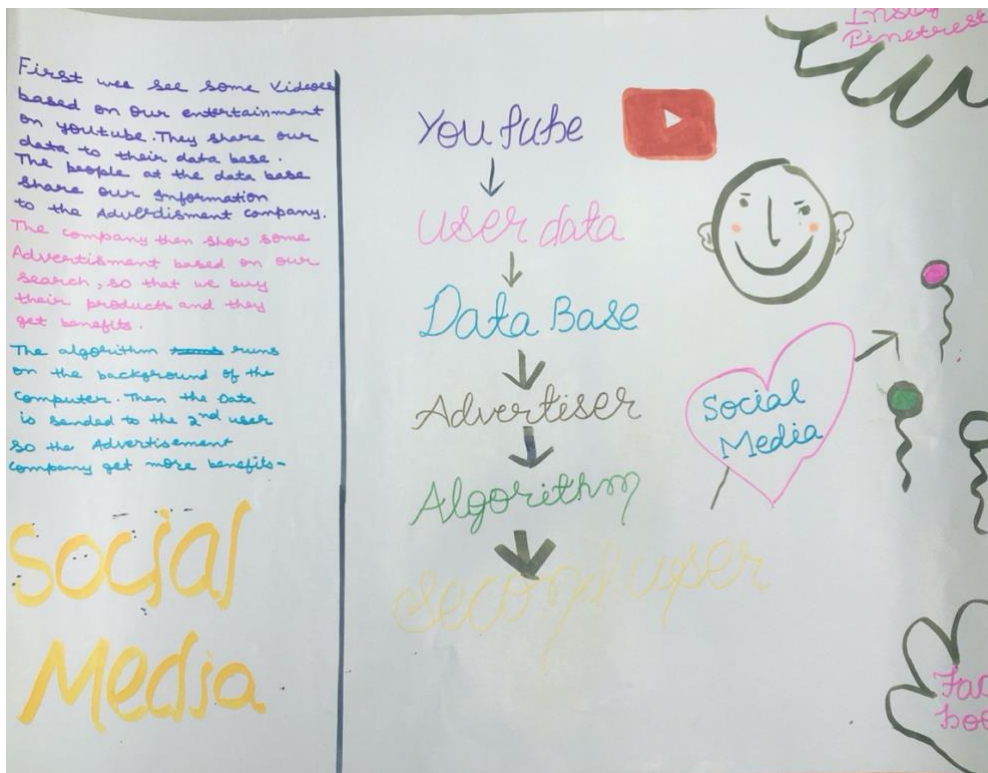 First wee see some Videoes
based on our entertainment
on youtube. They share our
data to their data base.
The people at the data base
share our Information
to the Adverdisment company.
The company then show some
Advertisment based on our
search, so that we buy
their products and they
get benefits.
The algorithm runs
on the background of the
computer. Then the Data
is sended to the 2nd user
so the Advertisement
company get more benefits-
Social
Media
YouTube
User data
Data Base
Advertiser
Algorithm
Second user
Social
Media
Pinetrest